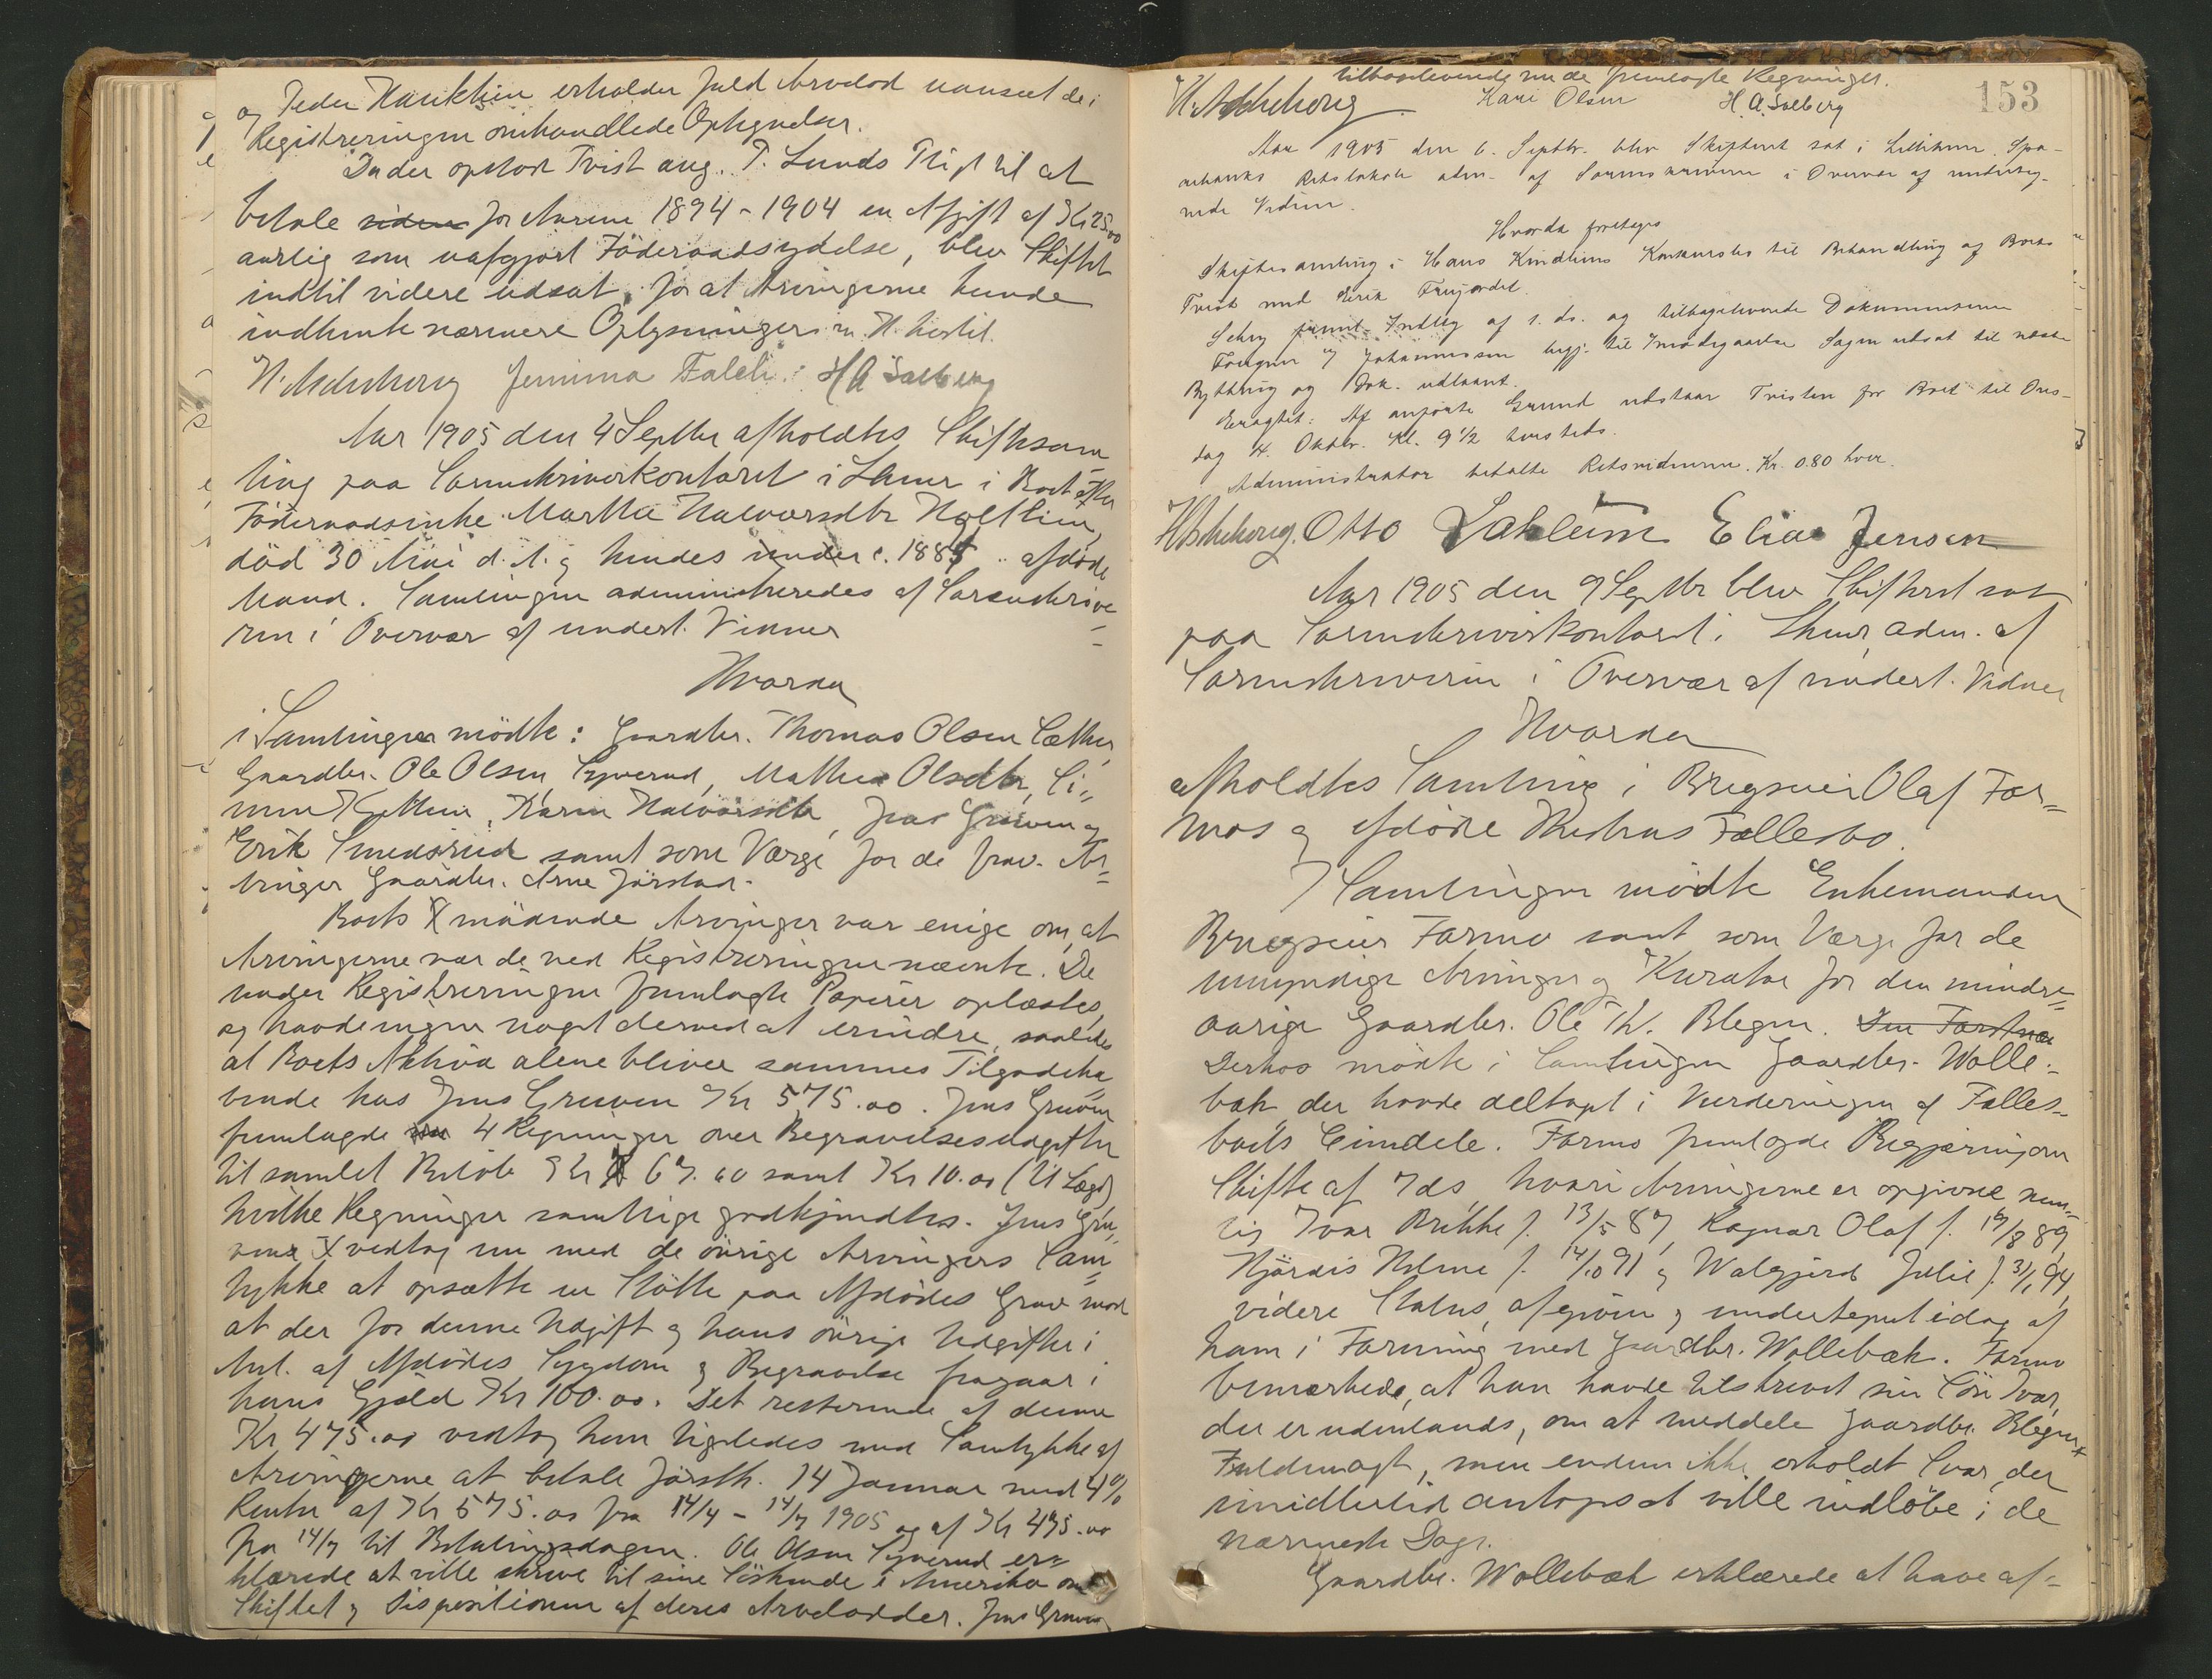 og Peder Haukliien erholder fuld Arvelod uanseet de i
Registreringen omhandlede Optegnelser.
Da der opstod Tvist ang. P. Lunds Pligt til at
betale siden for Aarene 1894 - 1904 en Afgift af Kr 25.00
aarlig som uafgjort Föderaadsydelse, blev Skiftet
indtil videre udsat, for at Arvingerne kunde
indhente nærmere Oplysninger m. H. hertil.
H. Aschehoug Jemima Falch. H A Solberg
Aar 1905 den 4 Septbr afholdtes Skiftesam
ling paa Sorenskriverkontoret i Lhmr i Boet efter
Föderaadsenke Marthe Halvorsdtr
död 30 Mai d. A. og hendes under c. 1885 afdöde
Mand. Samlingen administreredes af Sorenskrive
ren i Overvær af undert. Vidner
Hvorda
i Samlingen mödte: Gaardbr. Thomas Olsen Sæther,
Gaardbr. Ole Olsen Syverud, Mathea Olsdtr, Si-
men Karen Halvorsdtr, Jens Gruven og
Erik Smedsrud samt som Værge for de frav. Ar-
vinger Gaardbr. Arne Jörstad.
Boets mödende Arvinger var enige om, at
Arvingerne var de ved Registreringen nævnte. De
under Registreringen fremlagte Papirer oplæstes,
og havde ingen noget derved at erindre, saaledes
at Boets Aktiva alene bliver sammes Tilgodeha
vende hos Jens Gruven Kr 575.00. Jens Gruven
fremlagde 4 Regninger over Begravelsesudgifter
til samlet Belöb Kr 67.60 samt Kr 10.00 (til Læge)
hvilke Regninger samtlige godkjendtes. Jens Gru-
ven vedtog nu med de övrige Arvingers Sam-
tykke at opsætte en Stötte paa Afdödes Grav mod
at der for denne Udgift og hans övrige Udgifter i
Anl. af Afdödes Sygdom og Begravelse fragaar i
hans Gjæld Kr 100.00. Det resterende af denne
Kr 475.00 vedtog han ligeledes med Samtykke af
Arvingerne at betale förstk. 14 Januar med 4%
Renter af Kr 575.00 fra 14/4 - 14/7 1905 og af Kr 475.00
fra 14/7 til Betalingsdagen. Ole Olsen Syverud er-
klærede at ville skrive til sine Söskende i Amerika om
Skiftet og Dispositionen af deres Arvelodder. Jens Gruven
153
tilbageleverede nu de fremlagte Regninger.
H. Aschehoug. Kari Olsen H. A. Solberg
Aar 1905 den 6. Septbr. blev Skifteret sat i Lillehmr. Spa-
rebanks Retslokale adm. af Sorenskriveren i Overvær af underteg-
nede Vidner.
Hvorda foretoges
Skiftesamling i Hans Kindlins Konkursbo til Behandling af Boets
Tvist med Erik
fremlagde Indlæg af 1. ds. og tilbageleverede Dokumenterne
og Johannessen begj. til Imödegaaelse Sagen udsat til næste
og Dok. udlaant.
Eragtet: Af anförte Grund udstaar Tvisten for Boet til Ons-
dag 4. Oktbr. Kl. 9 1/2 hersteds.
Administrator betalte Retsvidnerne Kr. 0.80 hver.
H Aschehoug. Otto Dahleim Elias Jensen
Aar 1905 den 9 Septbr blev Skifteret sat
paa Sorenskriverkontoret i Lhmr, adm. af
Sorenskriveren i Overvær af undert. Vidner
Hvorda
afholdtes Samling i Brugseier Olaf For-
mos og afdöde Fællesbo.
I Samlingen mödte Enkemanden
Brugseier Formo samt som Værge for de
umyndige Arvinger og Kurator for den mindre-
aarige Gaardbr. Ole Th. Blegen. Den
Derhos mödte i Samlingen Gaardbr. Wolle-
bæk der havde deltaget i Vurderingen af Fælles-
boets Eiendele. Formo fremlagde Begjæring om
Skifte af 7 ds, hvori Arvingerne er opgivne nem-
lig Ivar Brikke f. 13/5 87, Ragnar Olaf f. 19/8 89,
Hjördis Helene f. 14/10 91 og Walgjerd Julie f. 31/1 94,
videre Status, afgiven og undertegnet idag af
ham i Forening med Gaardbr. Wollebæk. Formo
bemærkede, at han havde tilskrevet sin Sön Ivar,
der er udenlands, om at meddele Gaardbr. Blegen
Fuldmagt, men endnu ikke erholdt Svar, der
imidlertid antoges at ville indlöbe i de
nærmeste Dage.
Gaardbr. Wollebæk erklærede at have af-